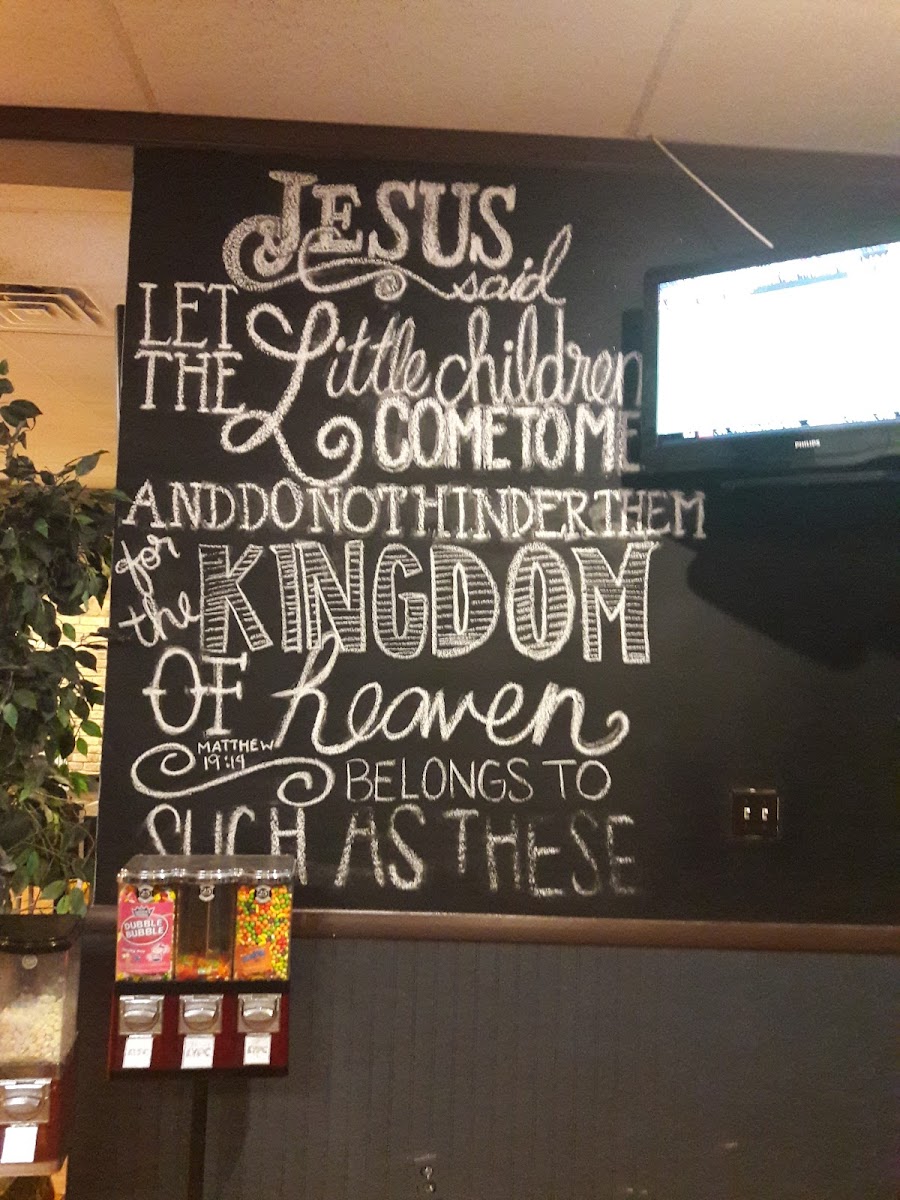 JESUS
said
LET
THE Little children
COME TO ME
AND DO NOT HINDER THEM
for
the KINGDOM
OF heaven
MATTHEW
19:14
BELONGS TO
SUCH AS THESE
PHILIPS
DUBBLE
BUBBLE